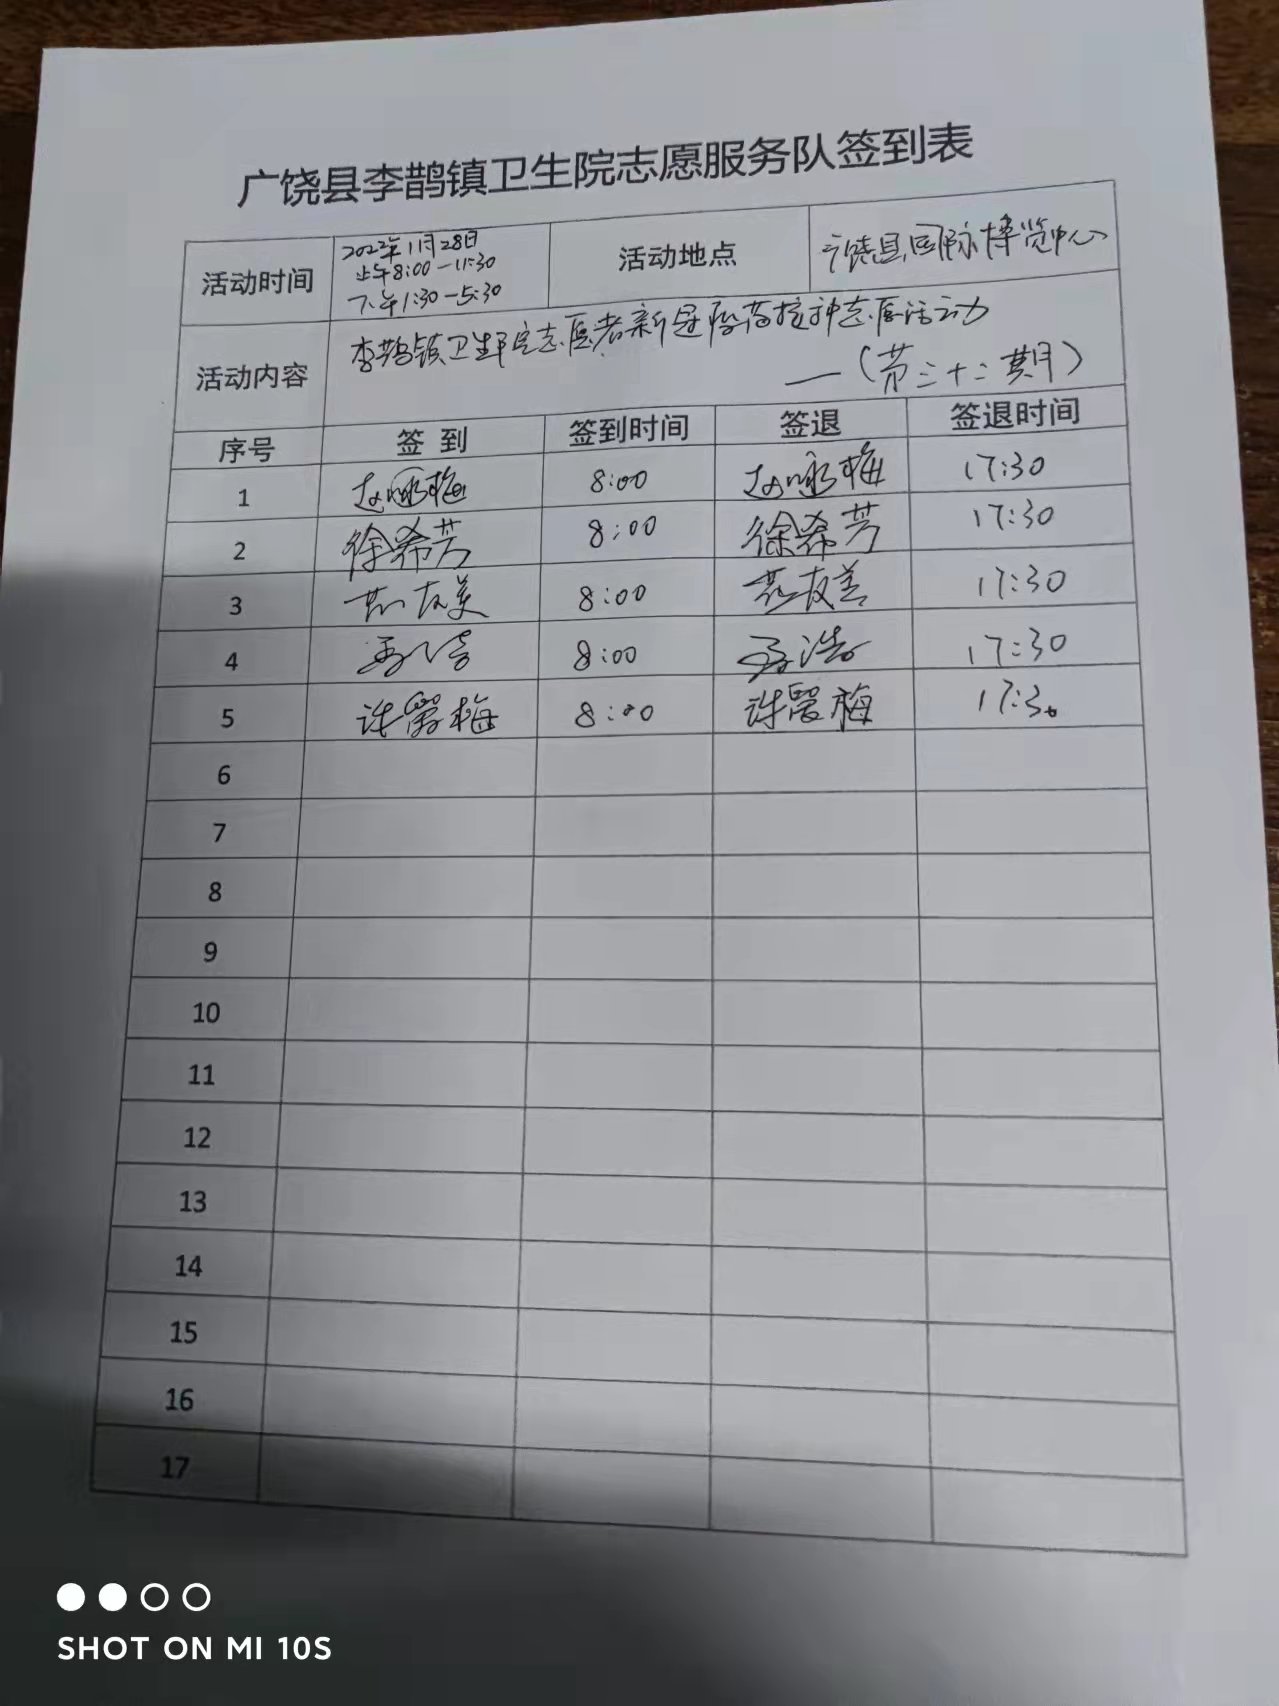 广饶县李鹊镇卫生院志愿服务队签到表
活动时间 2022年11月28日 上午8:00-11:30 下午1:30-5:30 活动地点 广饶县国际博览中心
活动内容 李鹊镇卫生院志愿者新冠疫苗接种志愿活动
—(第三十二期)
序号 签到 签到时间 签退 签退时间
1 赵咏梅 8:00 赵咏梅 17:30
2 徐希芳 8:00 徐希芳 17:30
3 8:00 17:30
4 8:00 17:30
5 8:00 17:30
6
7
8
9
10
11
12
13
14
15
16
17
SHOT ON MI 10S